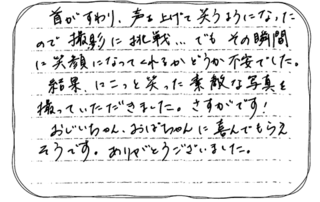 首がすわり、声を上げて笑うようになった
ので撮影に挑戦…でもその瞬間
に笑顔になってくれるかどうか不安でした。
結果、にこっと笑った素敵な写真を
撮っていただきました。さすがです!
おじいちゃん、おばちゃんに喜んでもらえ
そうです。ありがとうございました。